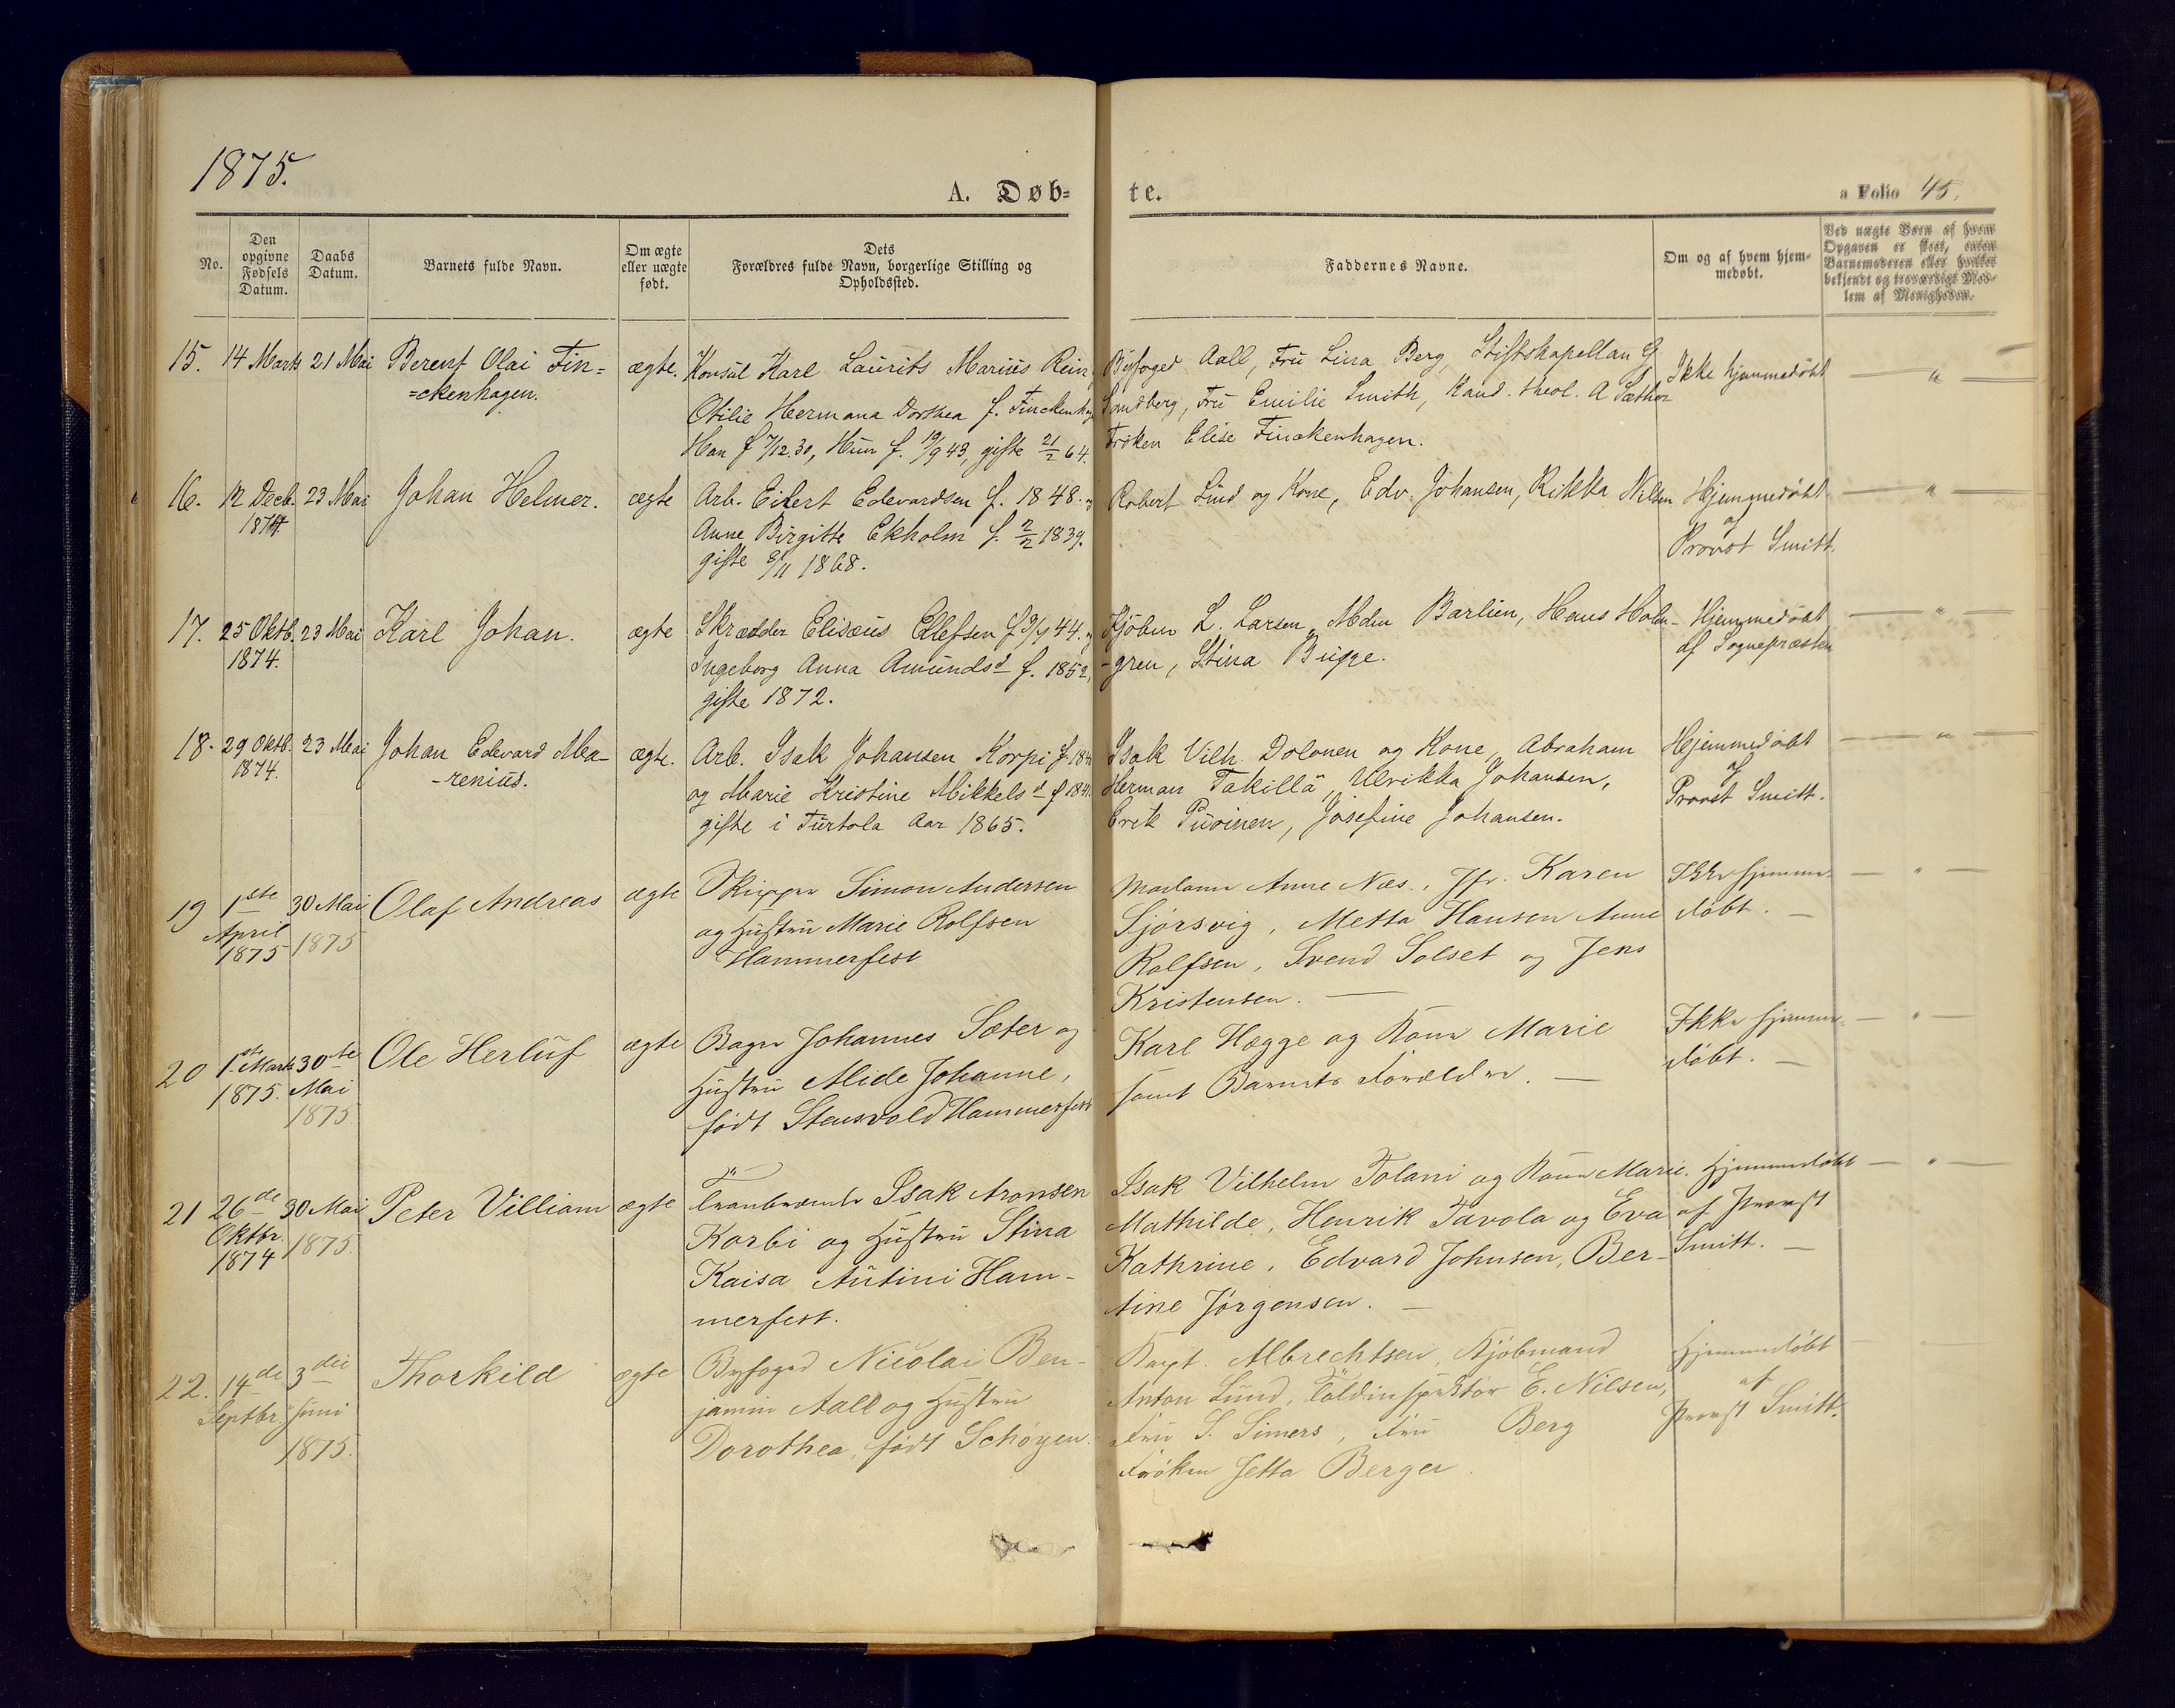 1875.
A. Døb= te.
a Folio 45.
No.
Den opgivne Fødsels Datum.
Daabs Datum.
Barnets fulde Navn.
Om ægte eller uægte født.
Dets Forældres fulde Navn, borgerlige Stilling og Opholdssted.
Faddernes Navne.
Om og af hvem hjemmedøbt.
Ved uægte Børn af hvem Opgaven er skeet, enten Barnemoderen eller hvilket bekjendt og troværdigt Medlem af Menigheden.
15. 14 Marts 21 Mai Berent Olai Fin=
=ckenhagen.
ægte.
Konsul Karl Laurits Marius Rein
Otilie Hermana Dorthea f. Finckenhag
Han f 7/12.30, Hun f. 19/9 43, gifte 21/2 64.
Byfoged Aall, Fru Lina Berg, Stiftskapellan G
Sandberg, Fru Emilie Smith, Kand. theol. A Sæther
Frøken Elise Finckenhagen.
Ikke hjemmedøbt
16. 12 Decb. 1874 23 Mai Johan Helmer. ægte
Arb. Eilert Edevardsen f. 1848.
Anne Birgitte Ekholm f. 2/2 1839.
gifte 8/11 1868.
Robert Lund og Kone, Edv. Johansen, Rikka Nilsen
Hjemmedøbt
af
Provst Smitt.
17. 25 Oktb. 1874. 23 Mai Karl Johan. ægte
Skrædder Elisæus Ellefsen f 3/4 44.
Ingeborg Anna Amundsd f. 1852,
gifte 1872.
Kjøbm L. Larsen, Mdm Barlien, Hans Holm-
-gren, Stina Bugge.
Hjemmedøbt
af Sognepræsten
18. 29 Oktb. 1874. 23 Mai Johan Edevard Ma-
-renius.
ægte.
Arb. Isak Johansen Korpi f. 184
og Marie Kristine Mikkelsd f 184
gifte i Turtola Aar 1865.
Isak Vilh. Dolonen og Kone, Abraham
Herman Takillä, Ulrikka Johansen,
Erik Puoinen, Josefine Johansen.
Hjemmedøbt
af
Provst Smitt.
19 1ste April 1875 30 Mai 1875 Olaf Andreas ægte
Skipper Simon Andersen
og Hustru Marie Rolfsen
Hammerfest
Madame Anne Næs, Jfr. Karen
Sjørsvig, Metta Hansen Anne
Rolfsen, Svend Solset og Jens
Kristensen.
Ikke hjemme-
døbt.
20 1ste Marts 1875. 30te Mai 1875 Ole Herluf ægte
Bager Johannes Sæter og
Hustru Alide Johanne,
født Stensvold Hammerfest
Karl Hegge og Kone Marie
samt Barnets Forældre.
Ikke hjemme-
døbt.
21 26de Oktbr. 1874 30 Mai 1875 Peter Villiam ægte
Tranbrænder Isak Aronsen
Korbi og Hustru Stina
Kaisa Autini Ham-
merfest.
Isak Vilhelm Tolani og Kone Marie
Mathilde, Henrik Tavola og Eva
Kathrine, Edvard Johnsen, Ber-
tine Jørgensen.
Hjemmedøbt
af Provst
Smitt.
22. 14de Septbr. 3die Juni 1875. Thorkild ægte
Byfoged Nicolai Ben-
jamin Aall og Hustru
Dorothea, født Schøyen.
Kapt. Albrechtsen, Kjøbmand
Anton Lund, Toldinspektør E. Nilsen,
Fru S. Simers, Fru Berg
Frøken Jetta Berger.
Hjemmedøbt
af
Provst Smitt.